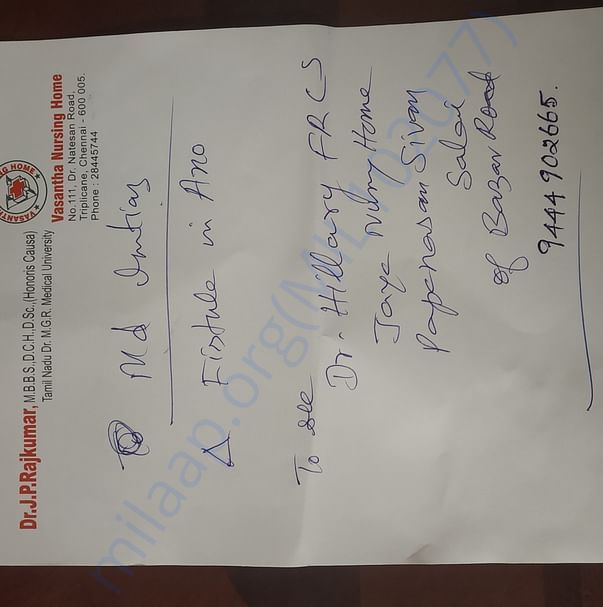 Dr.J.P.Rajkumar, M.B.B.S.,D.C.H.,D.Sc.,(Honoris Causa)
Tamil Nadu Dr. M.G.R. Medical University
VASANTHA
NG HOME
Vasantha Nursing Home
No:111, Dr. Natesan Road,
Triplicane, Chennai - 600 005.
Phone : 28445744
Md Imtiaz
Δ Fistule in Ano
To see
Dr. Hillary FRCS
Jaya Home
Papanasam Sivan
Salai
of Bazar Road
9444 902665.
milaap.org(MIL